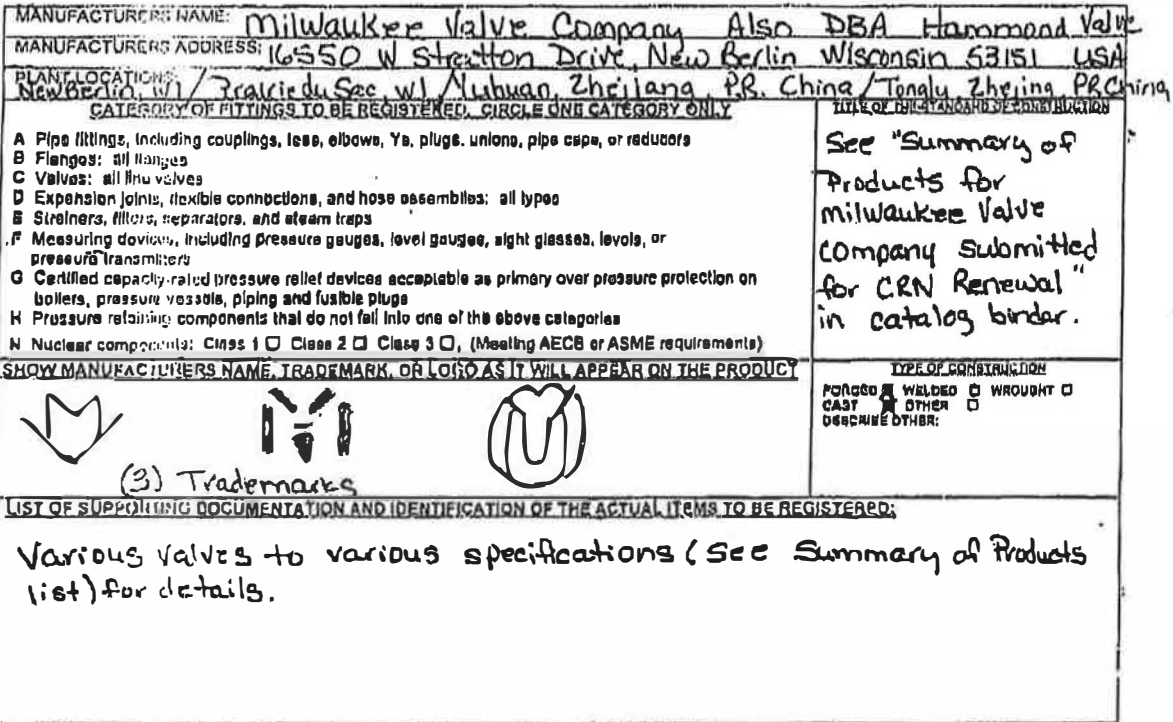 MANUFACTURERS NAME: Milwaukee Valve Company Also DBA Hammond Valve
MANUFACTURERS ADDRESS: 16550 W Stratton Drive, New Berlin Wisconsin 53151 USA
PLANT LOCATIONS: New Berlin, WI / Prairie du Sac, WI / Yuhuan, Zhejiang, P.R. China / Tonglu Zhejing, PR China
CATEGORY OF FITTINGS TO BE REGISTERED, CIRCLE ONE CATEGORY ONLY
A Pipe fittings, including couplings, tees, elbows, Ys, plugs, unions, pipe caps, or reducers
B Flanges: all flanges
C Valves: all line valves
D Expension joints, flexible connections, and hose assemblies: all types
E Strainers, filters, separators, and steam traps
F Measuring devices, including pressure gauges, level gauges, sight glasses, levels, or
pressure transmitters
G Certified capacity-rated pressure relief devices acceptable as primary over pressure protection on
boilers, pressure vessels, piping and fusible plugs
H Pressure retaining components that do not fall into one of the above categories
N Nuclear components: Class 1 ☐ Class 2 ☐ Class 3 ☐, (Meeting AECB or ASME requirements)
TITLE OF THE STANDARD OF CONSTRUCTION
See "Summary of
Products for
Milwaukee Valve
Company submitted
for CRN Renewal"
in catalog binder.
SHOW MANUFACTURERS NAME, TRADEMARK, OR LOGO AS IT WILL APPEAR ON THE PRODUCT
(3) Trademarks
TYPE OF CONSTRUCTION
FORGED ■ WELDED ☐ WROUGHT ☐
CAST ■ OTHER ☐
DESCRIBE OTHER:
LIST OF SUPPORTING DOCUMENTATION AND IDENTIFICATION OF THE ACTUAL ITEMS TO BE REGISTERED:
Various valves to various specifications (See Summary of Products
list) for details.